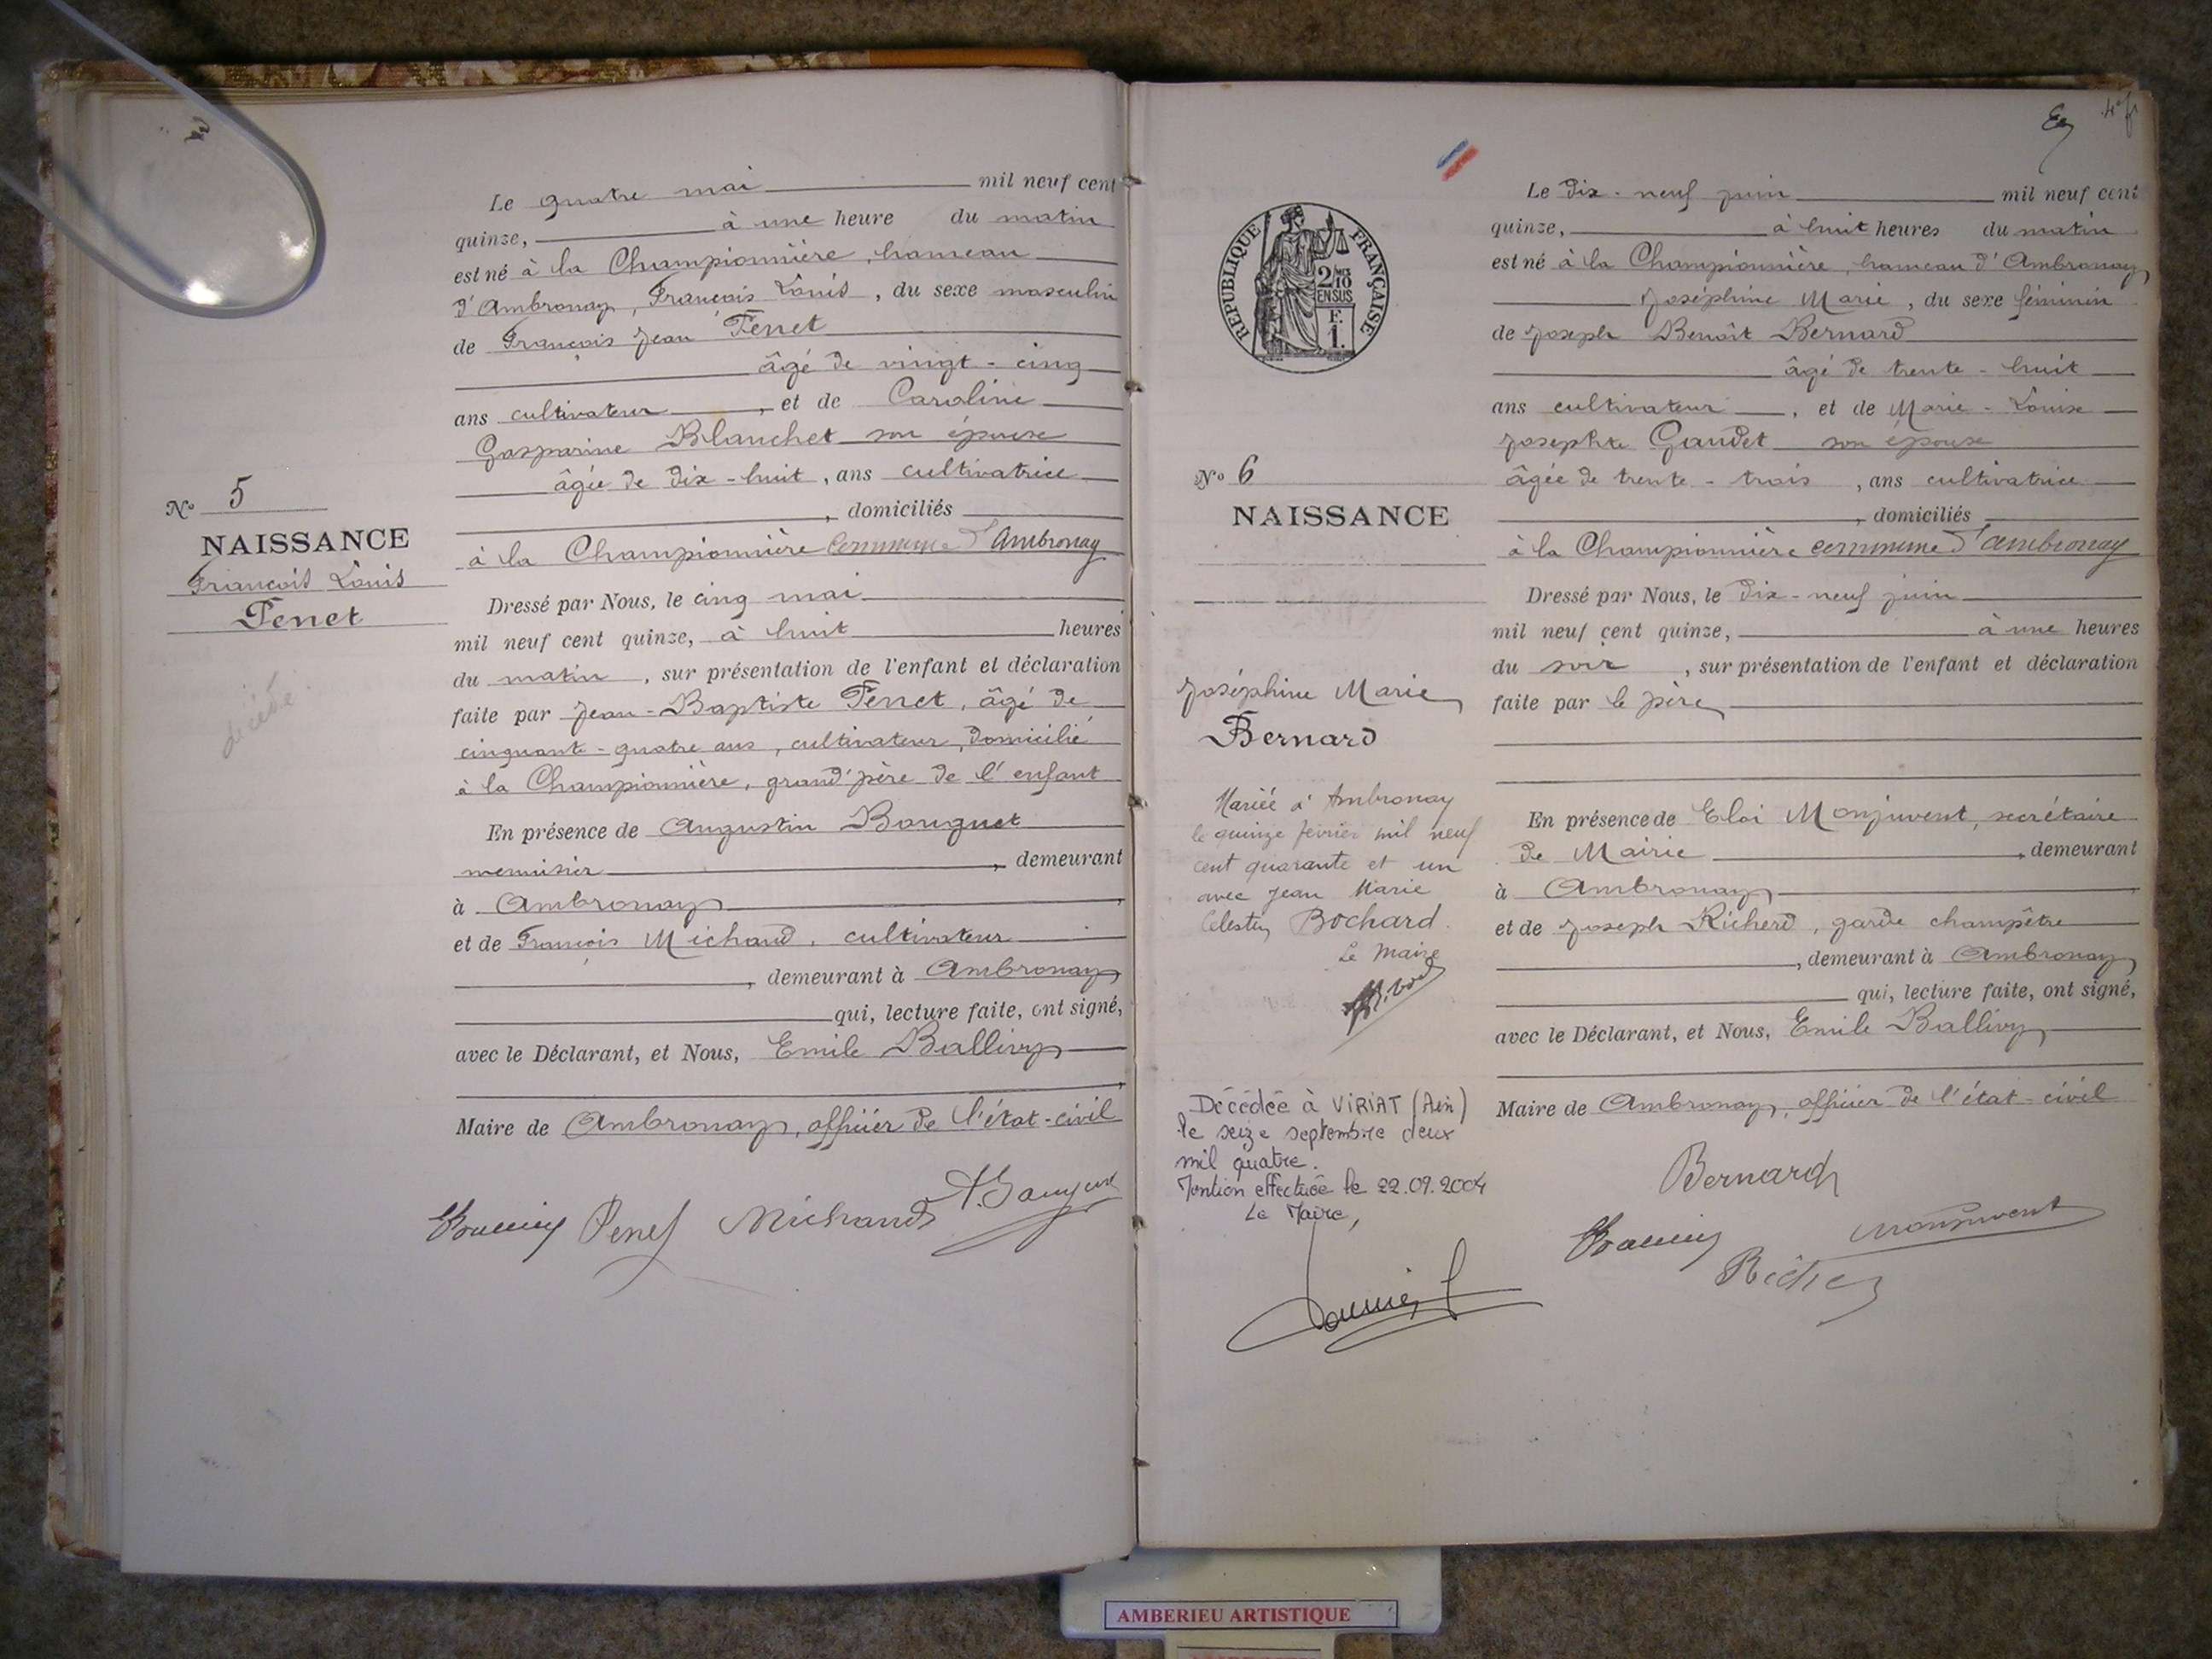 Le quatre mai mil neuf cent
quinze, à une heure du matin
est né à la Championnière, hameau
d'Ambronay, François Louis, du sexe masculin
de François Jean Tenet
âgé de vingt-cinq
ans cultivateur, et de Caroline
Gasparine Blanchet son épouse
âgée de dix-huit, ans cultivatrice
, domiciliés
à la Championnière commune d'Ambronay
Dressé par Nous, le cinq mai
mil neuf cent quinze, à huit heures
du matin, sur présentation de l'enfant et déclaration
faite par Jean-Baptiste Tenet, âgé de
cinquante-quatre ans, cultivateur, domicilié
à la Championnière, grand'père de l'enfant
En présence de Augustin Bouguet
menuisier, demeurant
à Ambronay
et de François Michaud, cultivateur
, demeurant à Ambronay
qui, lecture faite, ont signé,
avec le Déclarant, et Nous, Emile Ballivy
Maire de Ambronay, officier de l'état-civil
Michaud
No 5
NAISSANCE
François Louis
Tenet
décédé
Le dix-neuf juin mil neuf cent
quinze, à huit heures du matin
est né à la Championnière, hameau d'Ambronay
Joséphine Marie, du sexe féminin
de Joseph Benoît Bernard
âgé de trente-huit
ans cultivateur, et de Marie-Louise
Josephte Gaudet son épouse
âgée de trente-trois, ans cultivatrice
, domiciliés
à la Championnière commune d'ambronay
Dressé par Nous, le dix-neuf juin
mil neuf cent quinze, à une heures
du soir, sur présentation de l'enfant et déclaration
faite par le père
En présence de Eloi Monjuvent, secrétaire
de Mairie, demeurant
à Ambronay
et de Joseph Richerd, garde champêtre
, demeurant à Ambronay
qui, lecture faite, ont signé,
avec le Déclarant, et Nous, Emile Ballivy
Maire de Ambronay, officier de l'état-civil
Bernard
Monjuvent
RÉPUBLIQUE FRANÇAISE
2/10
EN SUS
F.
1.
No 6
NAISSANCE
Joséphine Marie
Bernard
Mariée à Ambronay
le quinze février mil neuf
cent quarante et un
avec Jean Marie
Célestin Bochard.
Le Maire
Décédée à VIRIAT (Ain)
le seize septembre deux
mil quatre.
Mention effectuée le 22.09.2004
Le Maire,
AMBERIEU ARTISTIQUE